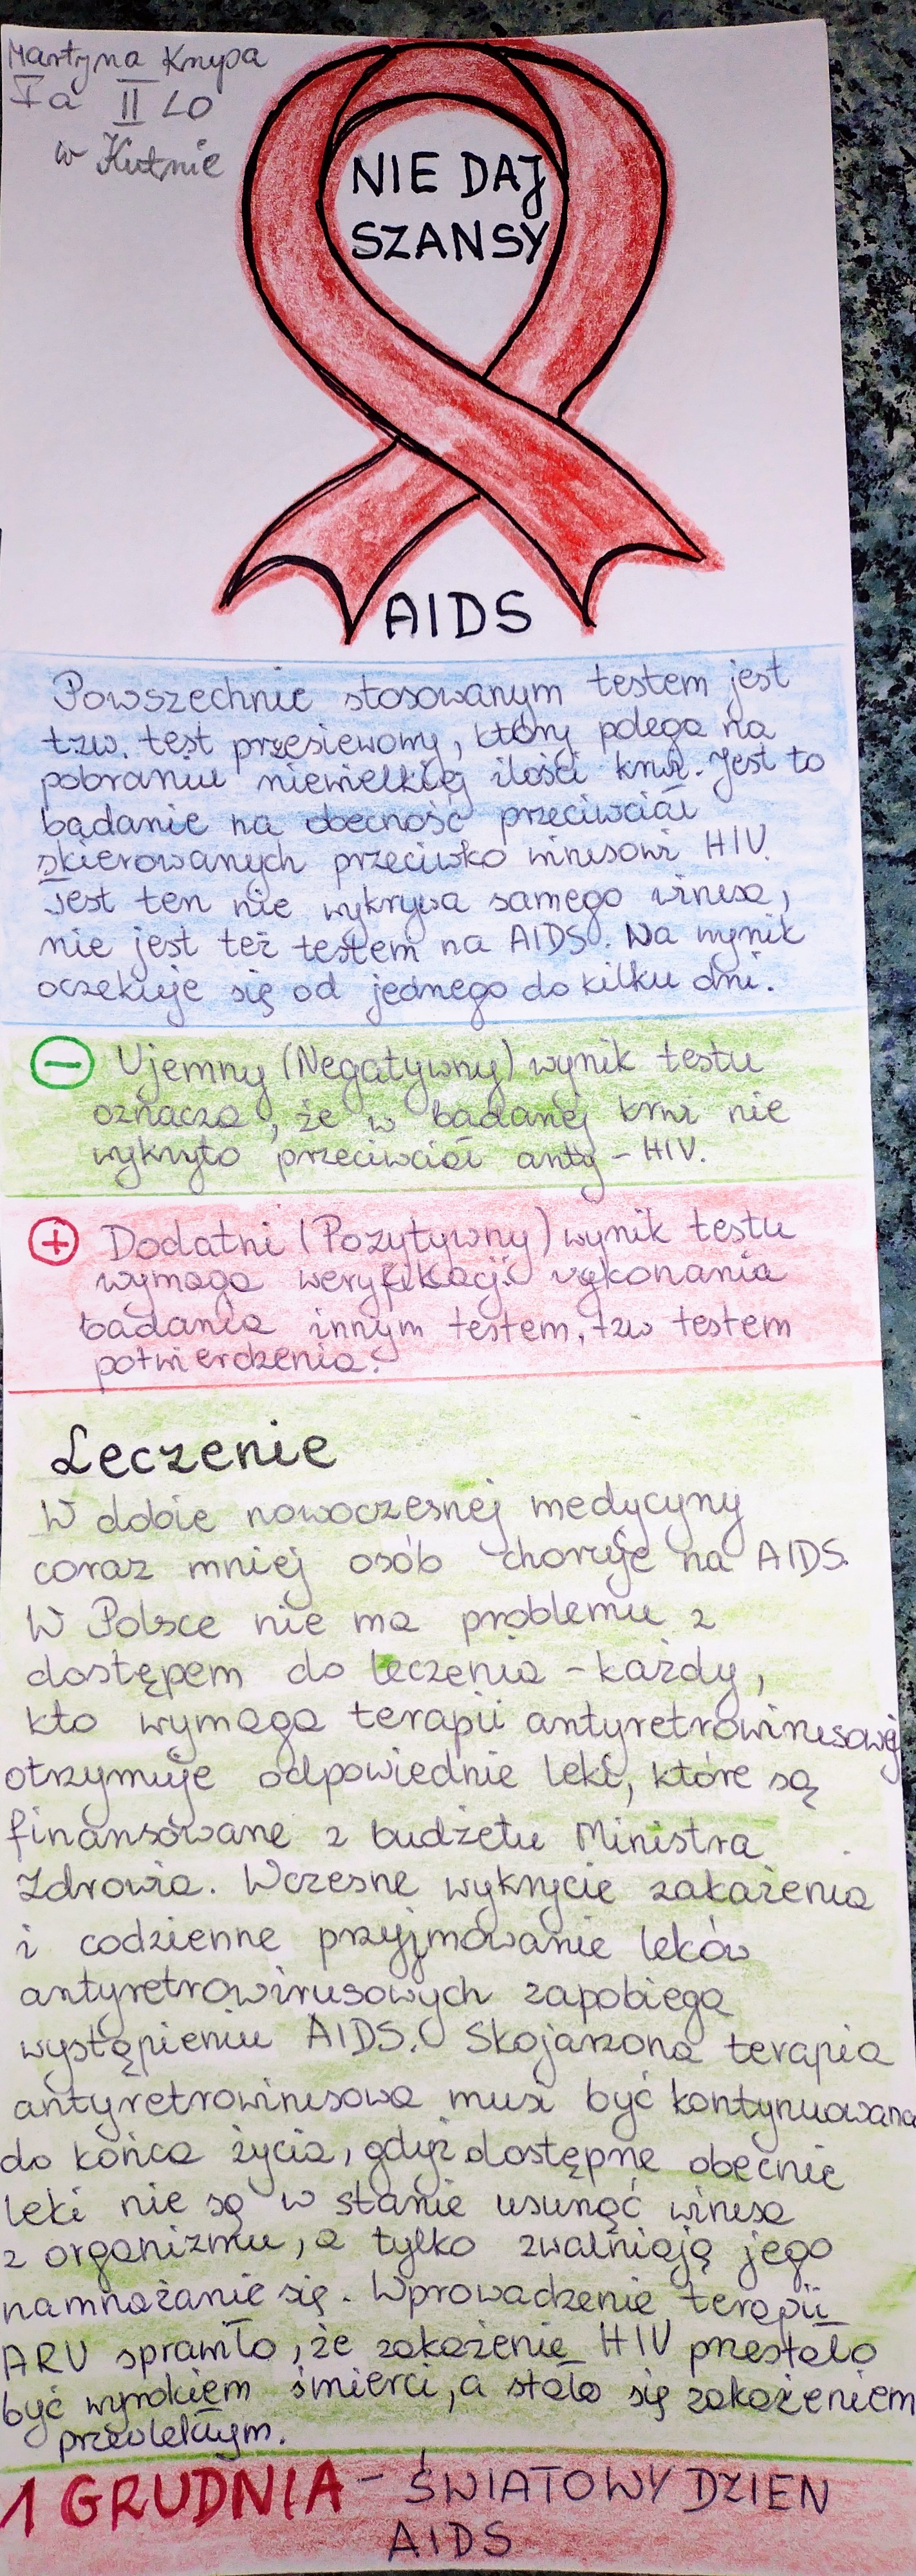 Martyna Krupa
Ia II LO
w Kutnie
NIE DAJ
SZANSY
AIDS
Powszechnie stosowanym testem jest
tzw. test przesiewowy, który polega na
pobraniu niewielkiej ilości krwi. Jest to
badanie na obecność przeciwciał
skierowanych przeciwko wirusowi HIV.
Test ten nie wykrywa samego wirusa,
nie jest też testem na AIDS. Na wynik
oczekuje się od jednego do kilku dni.
− Ujemny (Negatywny) wynik testu
oznacza, że w badanej krwi nie
wykryto przeciwciał anty-HIV.
+ Dodatni (Pozytywny) wynik testu
wymaga weryfikacji wykonania
badania innym testem, tzw testem
potwierdzenia.
Leczenie
W dobie nowoczesnej medycyny
coraz mniej osób choruje na AIDS.
W Polsce nie ma problemu z
dostępem do leczenia - każdy,
kto wymaga terapii antyretrowirusowej
otrzymuje odpowiednie leki, które są
finansowane z budżetu Ministra
Zdrowia. Wczesne wykrycie zakażenia
i codzienne przyjmowanie leków
antyretrowirusowych zapobiega
wystąpieniu AIDS. Skojarzona terapia
antyretrowirusowa musi być kontynuowana
do końca życia, gdyż dostępne obecnie
leki nie są w stanie usunąć wirusa
z organizmu, a tylko zwalniają jego
namnażanie się. Wprowadzenie terapii
ARV sprawiło, że zakażenie HIV przestało
być wyrokiem śmierci, a stało się zakażeniem
przewlekłym.
1 GRUDNIA - ŚWIATOWY DZIEŃ
AIDS